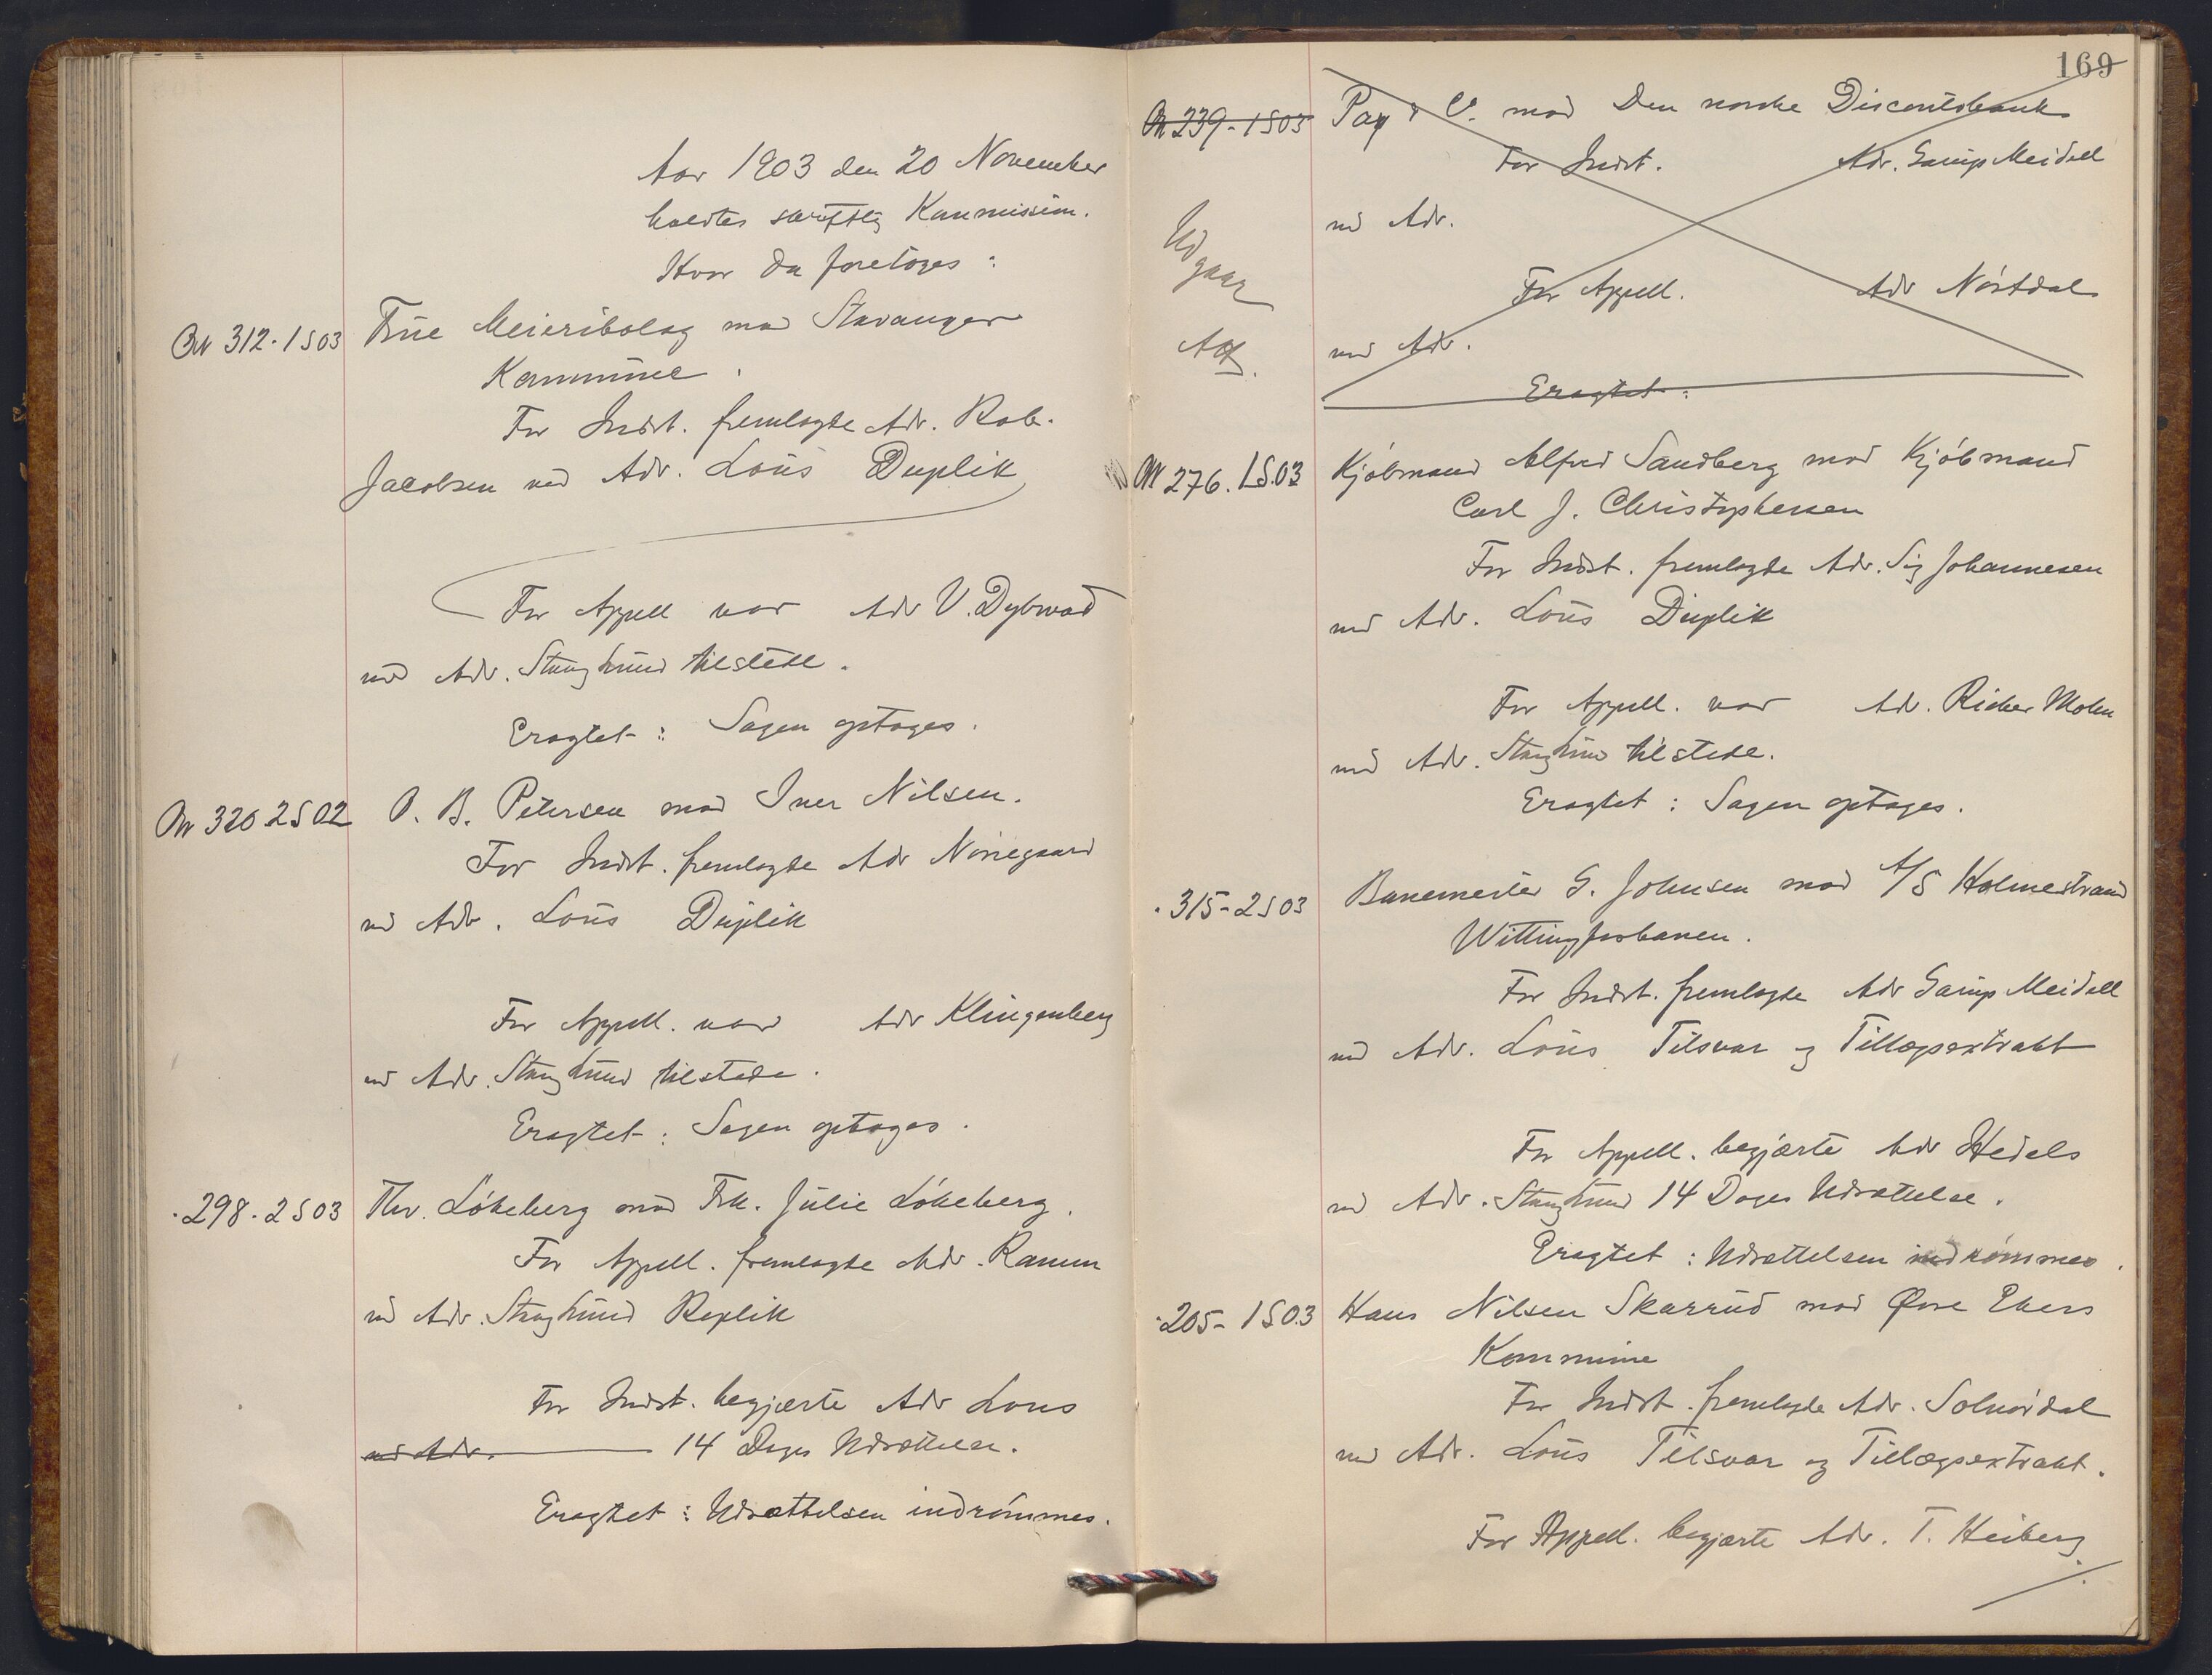 Aar 1903 den 20 November
holdtes skriftlig Kommission.
Hvor da foretoges:
No 312-1S03 Thue Meieribolag mod Stavanger
Kommune.
For Indst. fremlagde Adv. Rob.
Jacobsen ved Adv. Lous Duplik
For Appell var Adv V. Dybwad
ved Adv. Stang Lund tilstede.
Eragtet: Sagen optages.
No 320 2S02 O. B. Petersen mod Iver Nilsen.
For Indst. fremlagde Adv Nörregaard
ved Adv. Lous Duplik
For Appell. var Adv Klingenberg
ved Adv. Stang Lund tilstede.
Eragtet: Sagen optages.
298-2S03 Thv. Lökeberg mod Frk. Julie Lökeberg.
For Appell. fremlagde Adv. Ramm
ved Adv. Stang Lund Replik
For Indst. begjærte Adv Lous
ved Adv. 14 Dages Udsættelse.
Eragtet: Udsættelsen indrömmes.
169
No 239-1S03 Pay & C. mod Den norske Discontobank
For Indst. Adv. Harup Meidell
ved Adv.
Udgaar
For Appell. Adv Nörstdal
ved Adv.
Eragtet:
No 276.1S.03 Kjöbmand Alfred Sandberg mod Kjöbmand
Carl J. Christophersen
For Indst. fremlagde Adv. Sig Johannesen
ved Adv. Lous Duplik
For Appell. var Adv. Richer Mohn
ved Adv. Stang Lund tilstede.
Eragtet: Sagen optages.
315-2S03 Banemester G. Johnsen mod A/S Holmestrand
Wittingfosbanen.
For Indst. fremlagde Adv Harup Meidell
ved Adv. Lous Tilsvar og Tillægsextrakt
For Appell. begjærte Adv Hedels
ved Adv. Stang Lund 14 Dages Udsættelse.
Eragtet: Udsættelsen indrömmes.
205-1S03 Hans Nilsen Skarrud mod Øvre Ekers
Kommune
For Indst. fremlagde Adv. Solnördal
ved Adv. Lous Tilsvar og Tillægsextrakt.
For Appell. begjærte Adv. T. Heiberg